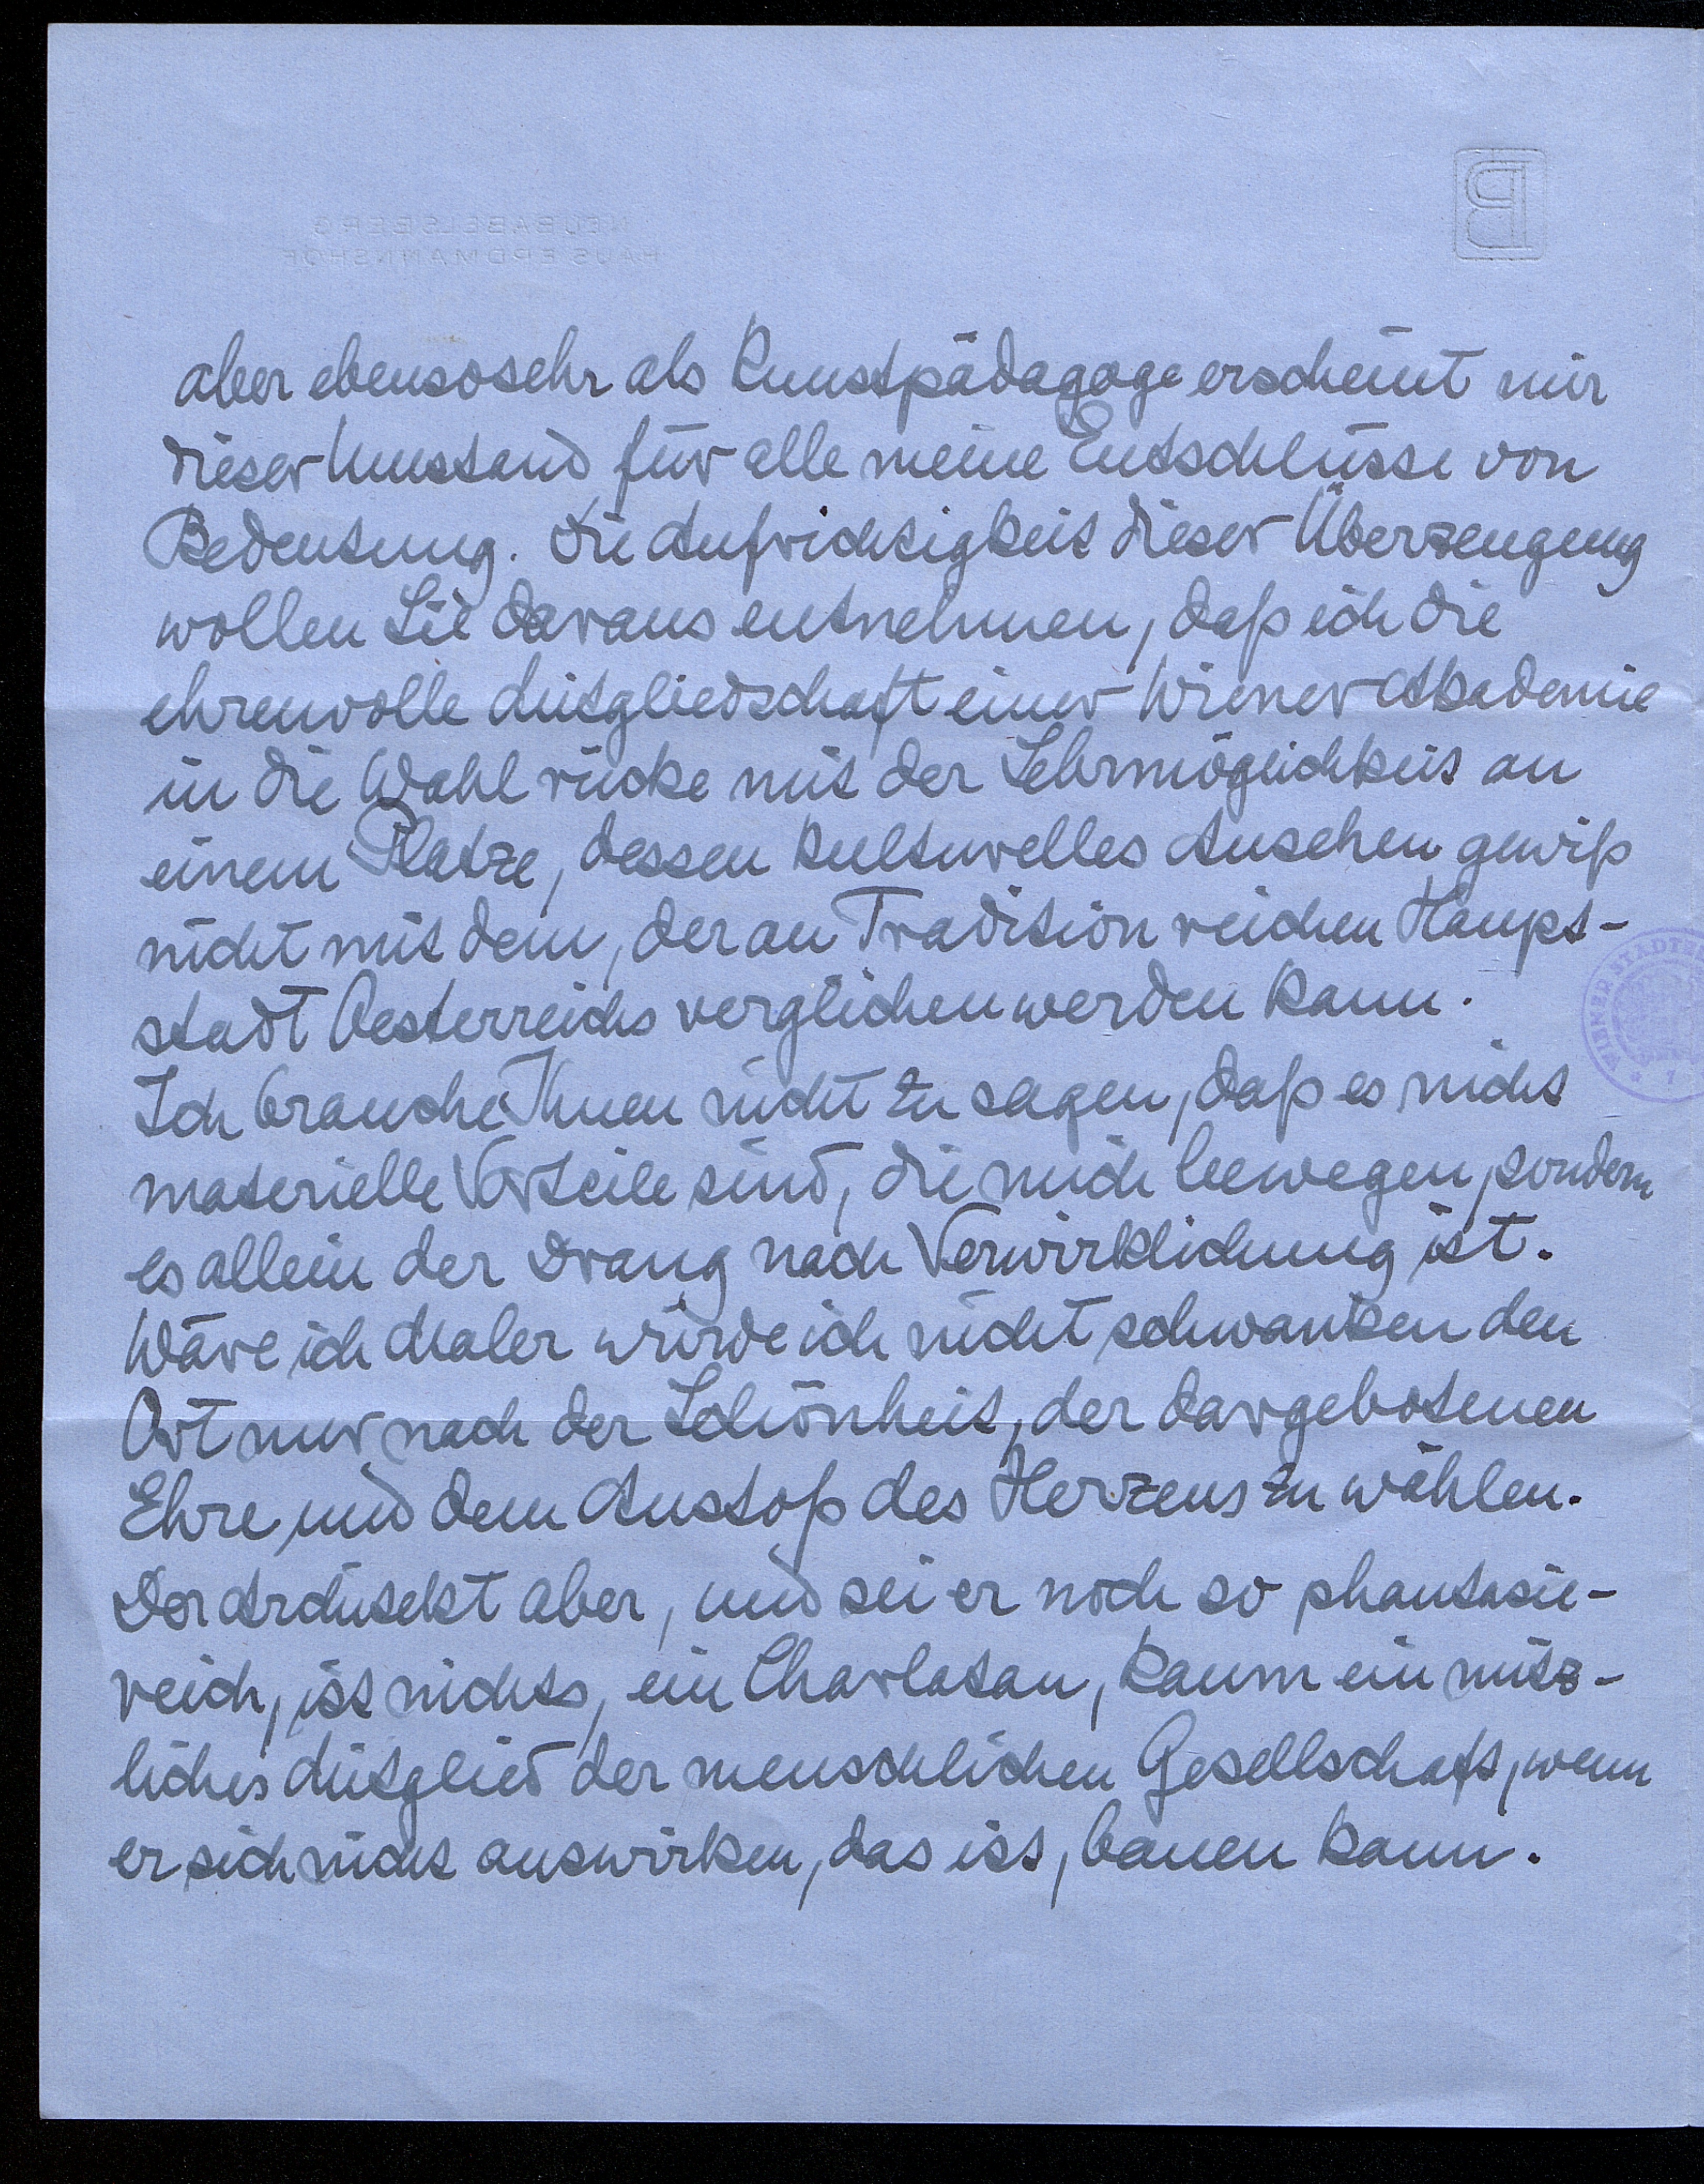 NEUBABELSBERG
HAUS ERDMANNSHOF
B
aber ebensosehr als Kunstpädagoge erscheint mir
dieser Umstand für alle meine Entschlüsse von
Bedeutung. Die Aufrichtigkeit dieser Überzeugung
wollen Sie daraus entnehmen, daß ich die
ehrenvolle Mitgliedschaft einer Wiener Akademie
in die Wahl rücke mit der Lehrmöglichkeit an
einem Platze, dessen kulturelles Ansehen gewiß
nicht mit dem, der an Tradition reichen Haupt-
stadt Oesterreichs verglichen werden kann.
WIENER STÄDT
Ich brauche Ihnen nicht zu sagen, daß es nicht
materielle Vorteile sind, die mich bewegen, sondern
es allein der Drang nach Verwirklichung ist.
Wäre ich Maler würde ich nicht schwanken den
Ort nur nach der Schönheit, der dargebotenen
Ehre und dem Anstoß des Herzens zu wählen.
Der Architekt aber, und sei er noch so phantasie-
reich, ist nichts, ein Charlatan, kaum ein nütz-
liches Mitglied der menschlichen Gesellschaft, wenn
er sich nicht auswirken, das ist, bauen kann.